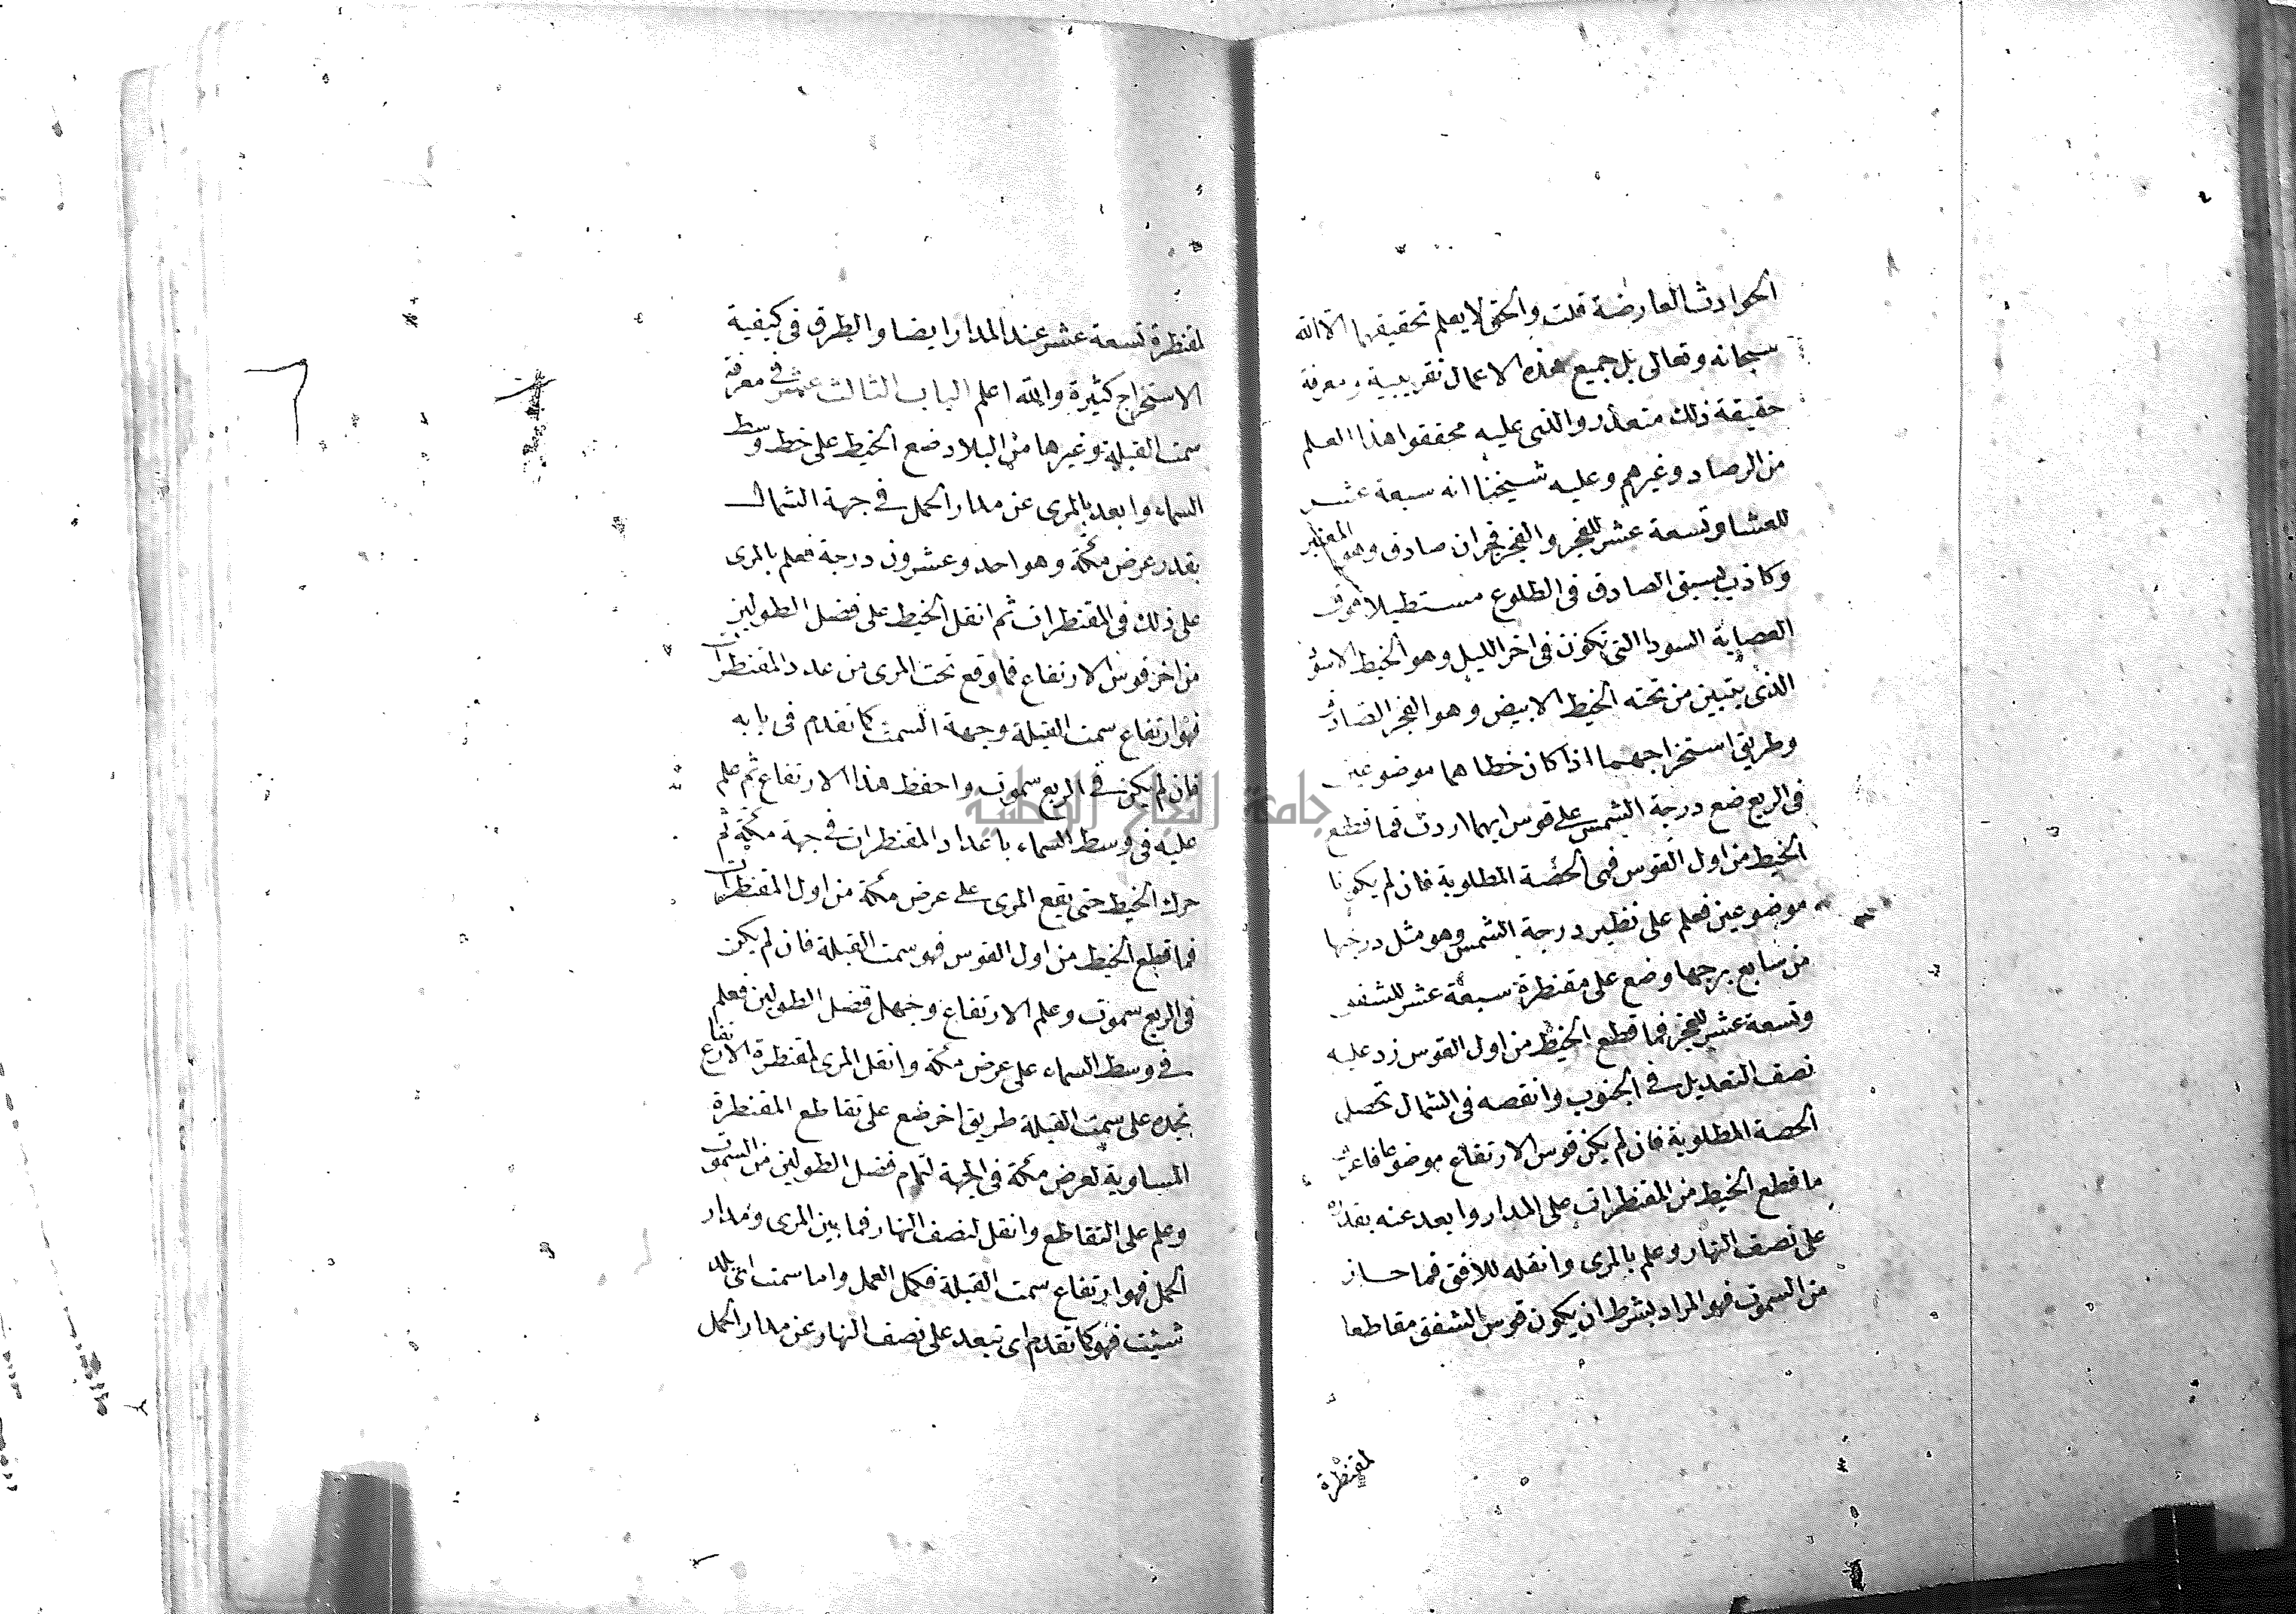 الحوادث العارضة قلت والحق لا يعلم تحقيقها الا الله
سبحانه وتعالى بل جميع هذه الاعمال تقريبية ومعرفة
حقيقة ذلك متعذر والذى عليه محققوا هذا العلم
من الرصاد وغيرهم وعليه شيخنا انه سبعة عشر
للعشا وتسعة عشر للفجر والفجر فجران صادق وهو
وكاذب يسبق الصادق فى الطلوع مستطيلا فوق
العصابة السودا التى تكون فى اخر الليل وهو الخيط الاسود
الذى يتبين من تحته الخيط الابيض وهو الفجر الصادق
وطريق استخراجهما اذا كان خطاهما موضوعين
فى الربع ضع درجة الشمس على قوس ايهما اردت فما قطع
الخيط من اول القوس فهى الحصة المطلوبة فان لم يكونا
موضوعين فعلم على نظير درجة الشمس وهو مثل درجتها
من سابع برجها وضع على مقنطرة سبعة عشر للشفق
وتسعة عشر للفجر فما قطع الخيط من اول القوس زد عليه
نصف التعديل فى الجنوب وانقصه فى الشمال تحصل
الحصة المطلوبة فان لم يكن قوس الارتفاع موضوعا فاعرف
ما قطع الخيط من المقنطرات على المدار وابعد عنه بقدره
على نصف النهار وعلم بالمرى وانقله للافق فما حاز
من السموت فهو المراد بشرط ان يكون قوس الشفق مقاطعا
لمقنطرة
لمقنطرة تسعة عشر عند المدار ايضا والطرق فى كيفية
الاستخراج كثيرة والله اعلم الباب الثالث عشر فى معرفة
سمت القبلة وغيرها من البلاد ضع الخيط على خط وسط
السماء وابعد بالمرى عن مدار الحمل فى جهة الشمال
بقدر عرض مكة وهو احد وعشرون درجة فعلم بالمرى
على ذلك فى المقنطرات ثم انقل الخيط على فضل الطولين
من اخر قوس الارتفاع فما وقع تحت المرى من عدد المقنطرات
فهو ارتفاع سمت القبلة وجهة السمت كما تقدم فى بابه
فان لم يكن فى الربع سموت واحفظ هذا الارتفاع ثم علم
عليه فى وسط السماء باعداد المقنطرات فى جهة مكة ثم
حرك الخيط حتى يقع المرى على عرض مكة من اول المقنطرات
فما قطع الخيط من اول القوس فهو سمت القبلة فان لم يكن
فى الربع سموت وعلم الارتفاع وجهل فضل الطولين فعلم
فى وسط السماء على عرض مكة وانقل المرى لمقنطرة الارتفاع
تجده على سمت القبلة طريق اخر ضع على تقاطع المقنطرة
المساوية لعرض مكة فى الجهة لتمام فضل الطولين من السموت
وعلم على التقاطع وانقل لنصف النهار فما بين المرى ومدار
الحمل فهو ارتفاع سمت القبلة فكمل العمل واما سمت اى بلد
شئت فهو كما تقدم اى تبعد على نصف النهار عن مدار الحمل
جامعة النجاح الوطنية